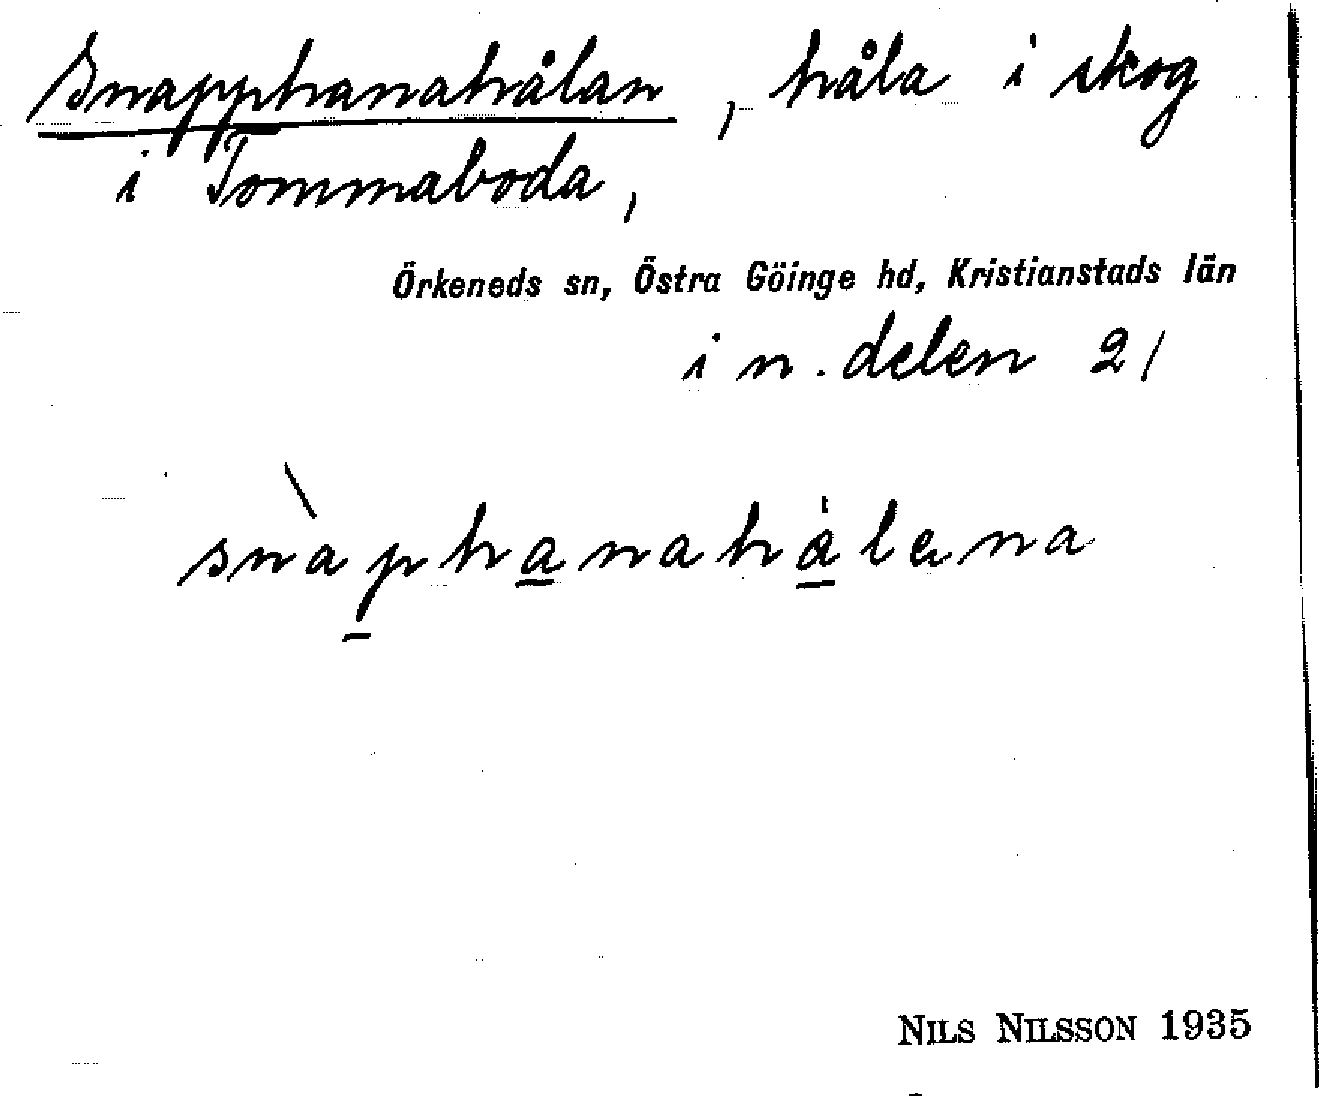 Snapphanahålan, håla i skog
i Tommaboda,
Örkeneds sn, Östra Göinge hd, Kristianstads län
i n. delen 21
snàphanahålena
NILS NILSSON 1935